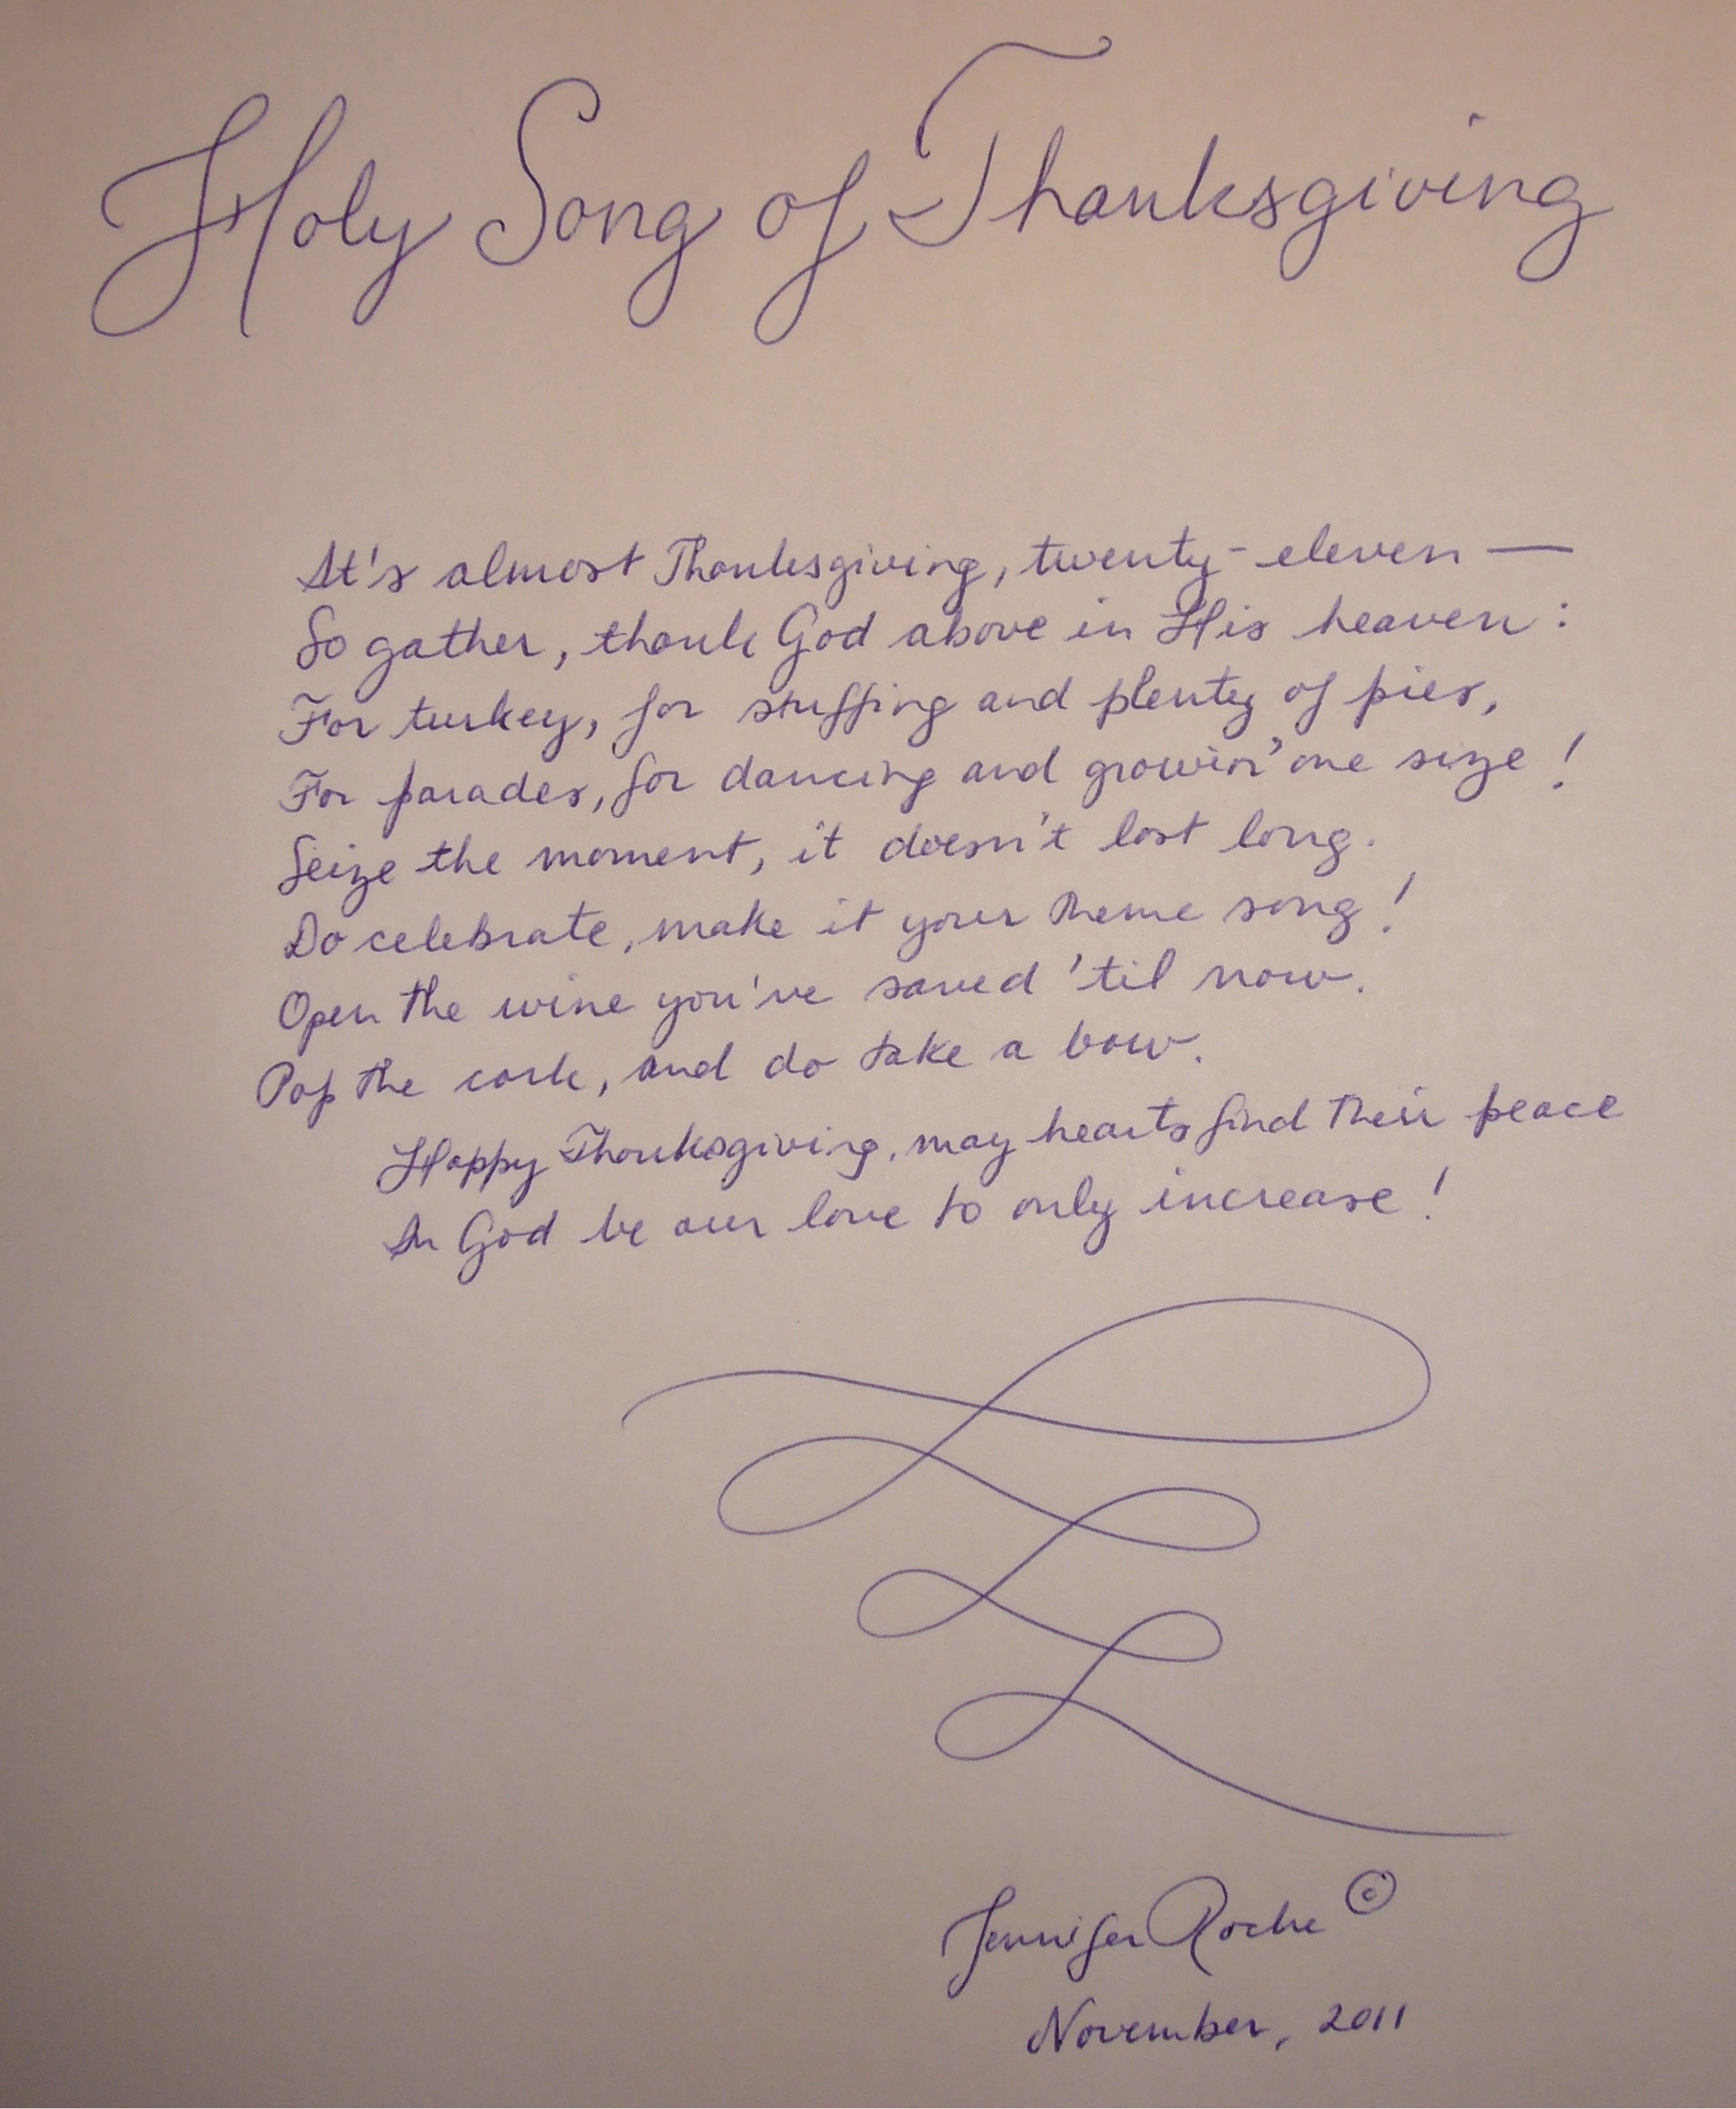 Holy Song of Thanksgiving
It's almost Thanksgiving, twenty-eleven —
So gather, thank God above in His heaven:
For turkey, for stuffing and plenty of pies,
For parades, for dancing and growin' one size!
Seize the moment, it doesn't last long.
Do celebrate, make it your theme song!
Open the wine you've saved 'til now.
Pop the cork, and do take a bow.
Happy Thanksgiving, may hearts find their peace
In God be our love to only increase!
Jennifer Roche ©
November, 2011